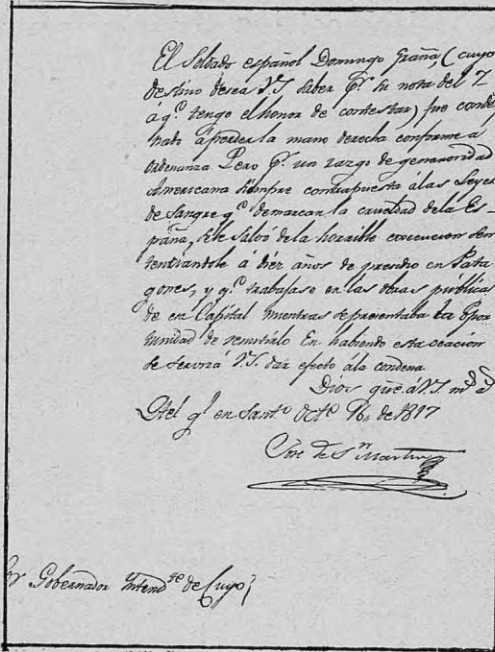 El Soldado español Domingo Graña (cuyo
destino desea V.S. saber pr. su nota del 7
á qe. tengo el honor de contestar) fue conde
nado á perder la mano derecha conforme a
ordenanza Pero pr. un razgo de generocidad
Americana siempre contrapuesta á las Leyes
de sangre qe. demarcan la crueldad de la Es-
paña, se le salvó de la horrible execucion sen
tenciandole a diez años de presidio en Pata
gones, y qe. trabajase en las obras publicas
de en Capital mientras se precentaba la Opor
tunidad de remitirlo En habiendo esta ocacion
se servirá V.S. dar efecto á la condena
Dios gue. á V.S. ms. as.
Qtel gl en Santo. Octe 16, de 1817
Jose de Sn. Martin
or Gobernador Intendte. de Cuyo